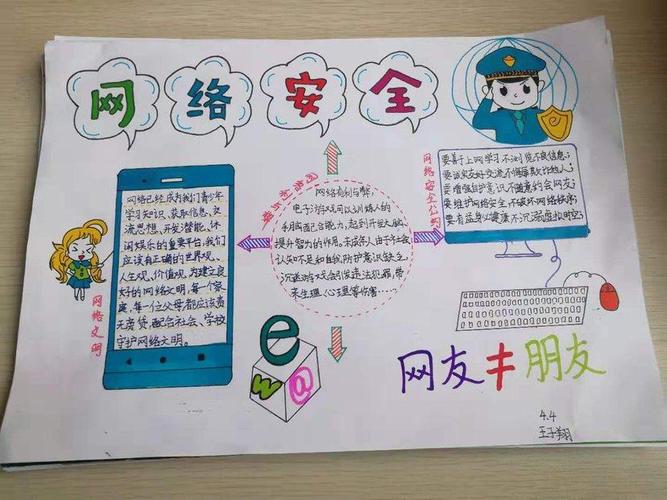 网络安全
网络文明
网络已经成为我们青少年
学习知识、获取信息、交
流思想、开发潜能、休
闲娱乐的重要平台,我们
应该有正确的世界观、
人生观、价值观,为建立良
好的网络文明,每一个家
庭,每一位父母都应该责
无旁贷,配合社会、学校
守护网络文明。
网络利与弊
网络有利与弊
电子游戏可以训练人的
手脑配合能力,起到开发大脑,
提升智力的作用。未成年人由于年社会
认知不足和自我防护意识缺乏
沉迷游戏会引发违法犯罪,带
来生理、心理等伤害……
网络安全公约
要善于上网学习 不浏览不良信息;
要诚实友好交流 不侮辱欺诈他人;
要增强自护意识 不随意约会网友;
要维护网络安全 不破坏网络秩序;
要有益身心健康 不沉溺虚拟时空;
e
w
@
网友≠朋友
4.4
王子翔